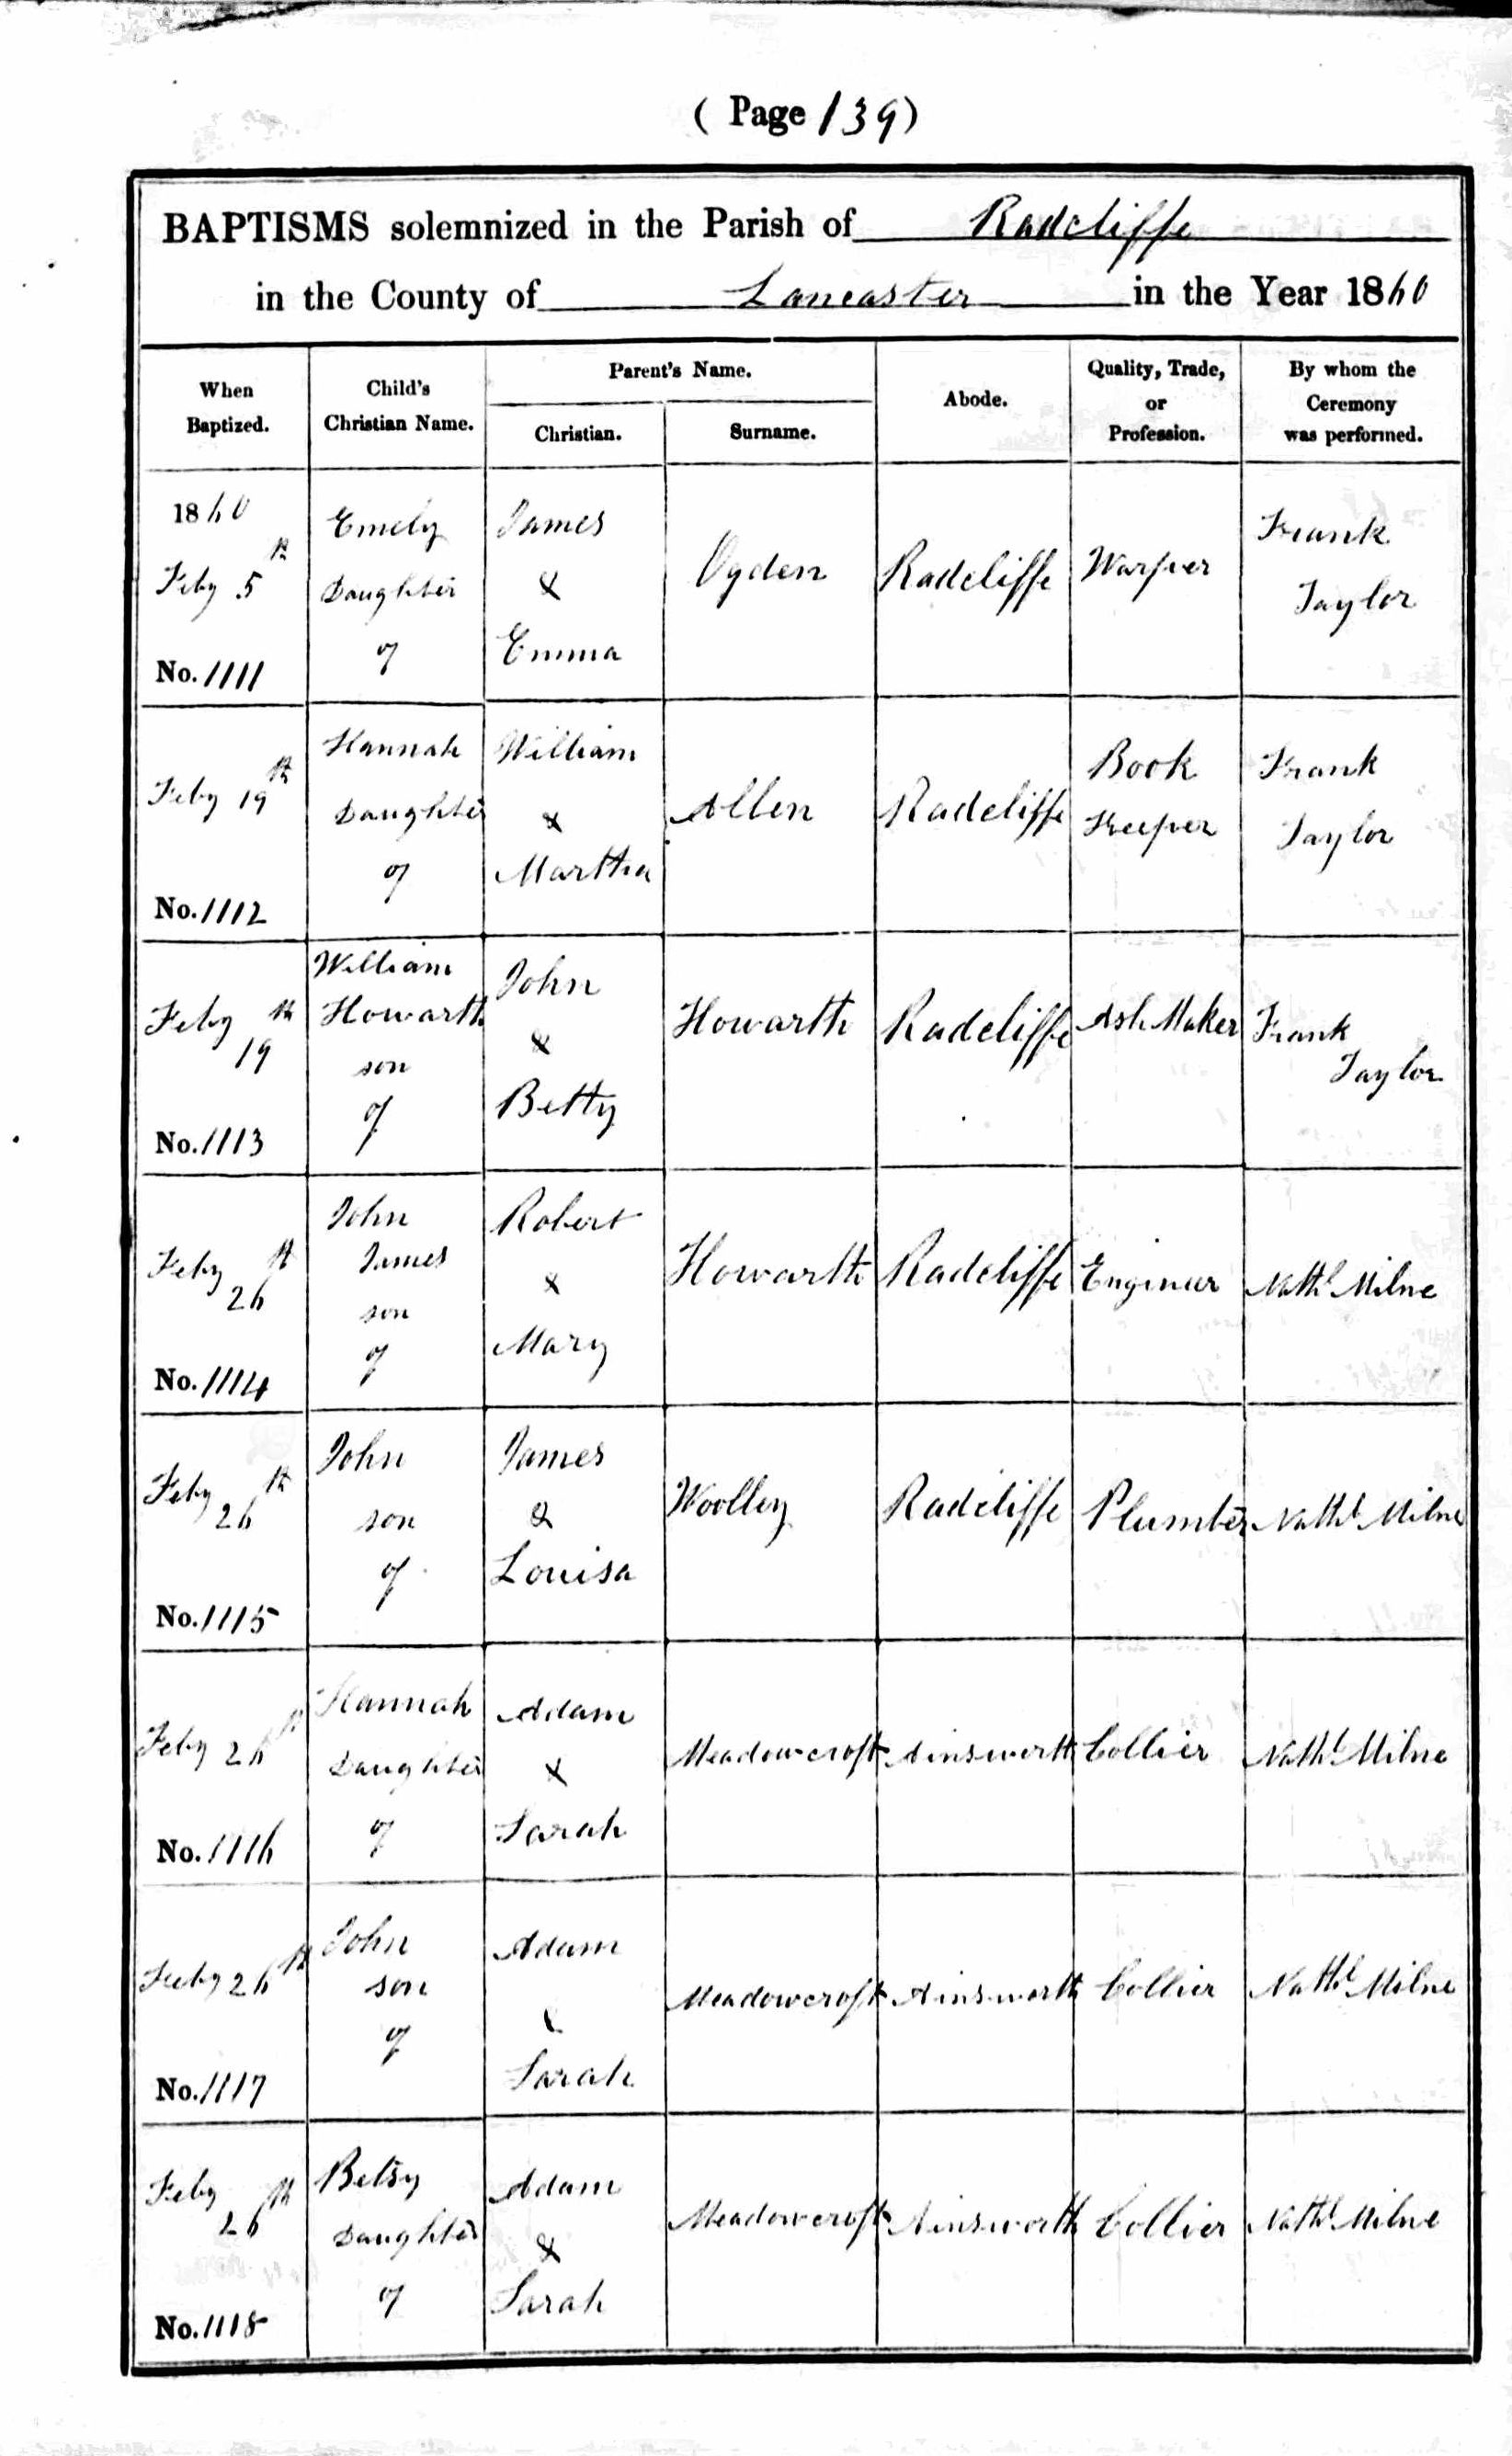 ( Page 139)
BAPTISMS solemnized in the Parish of Radcliffe
in the County of Lancaster in the Year 1860
When
Baptized.
Child's
Christian Name.
Parent's Name.
Christian.
Surname.
Abode.
Quality, Trade,
or
Profession.
By whom the
Ceremony
was performed.
1860
Feby 5th
No. 1111
Emely
Daughter
of
James
&
Emma
Ogden
Radcliffe
Warper
Frank
Taylor
Feby 19th
No. 1112
Hannah
Daughter
of
William
&
Martha
Allen
Radcliffe
Book
Keeper
Frank
Taylor
Feby th
19
No. 1113
William
Howarth
son
of
John
&
Betty
Howarth
Radcliffe
Ash Maker
Frank
Taylor
Feby th
26
No. 1114
John
James
son
of
Robert
&
Mary
Howarth
Radcliffe
Engineer
Nathl Milne
Feby th
26
No. 1115
John
son
of
James
&
Louisa
Woolley
Radcliffe
Plumber
Nathl Milne
Feby 26th
No. 1116
Hannah
Daughter
of
Adam
&
Sarah
Meadowcroft
Ainsworth
Collier
Nathl Milne
Feby 26th
No. 1117
John
son
of
Adam
&
Sarah
Meadowcroft
Ainsworth
Collier
Nathl Milne
Feby th
26
No. 1118
Betsy
Daughter
of
Adam
&
Sarah
Meadowcroft
Ainsworth
Collier
Nathl Milne